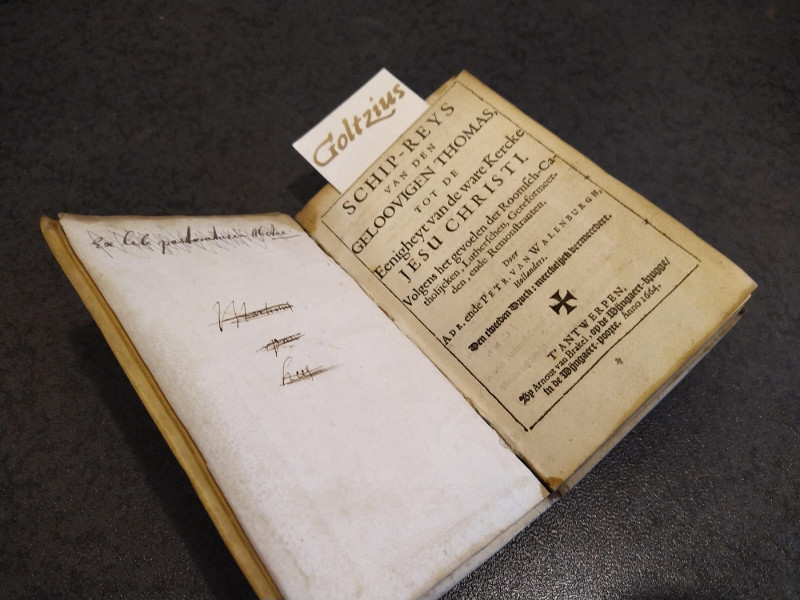 Goltzius
Ex lib pastoratus in
SCHIP-REYS
VAN DEN
GELOOVIGEN THOMAS,
TOT DE
Eenigheyt van de ware Kercke
JESU CHRISTI,
Volgens het gevoelen der Roomsch-Ca-
tholijcken, Lutherschen, Gereformeer-
den, ende Remonstranten.
Door
ADR. ende PETR. VAN WALENBURGH,
Hollanders.
Den tweeden Druck: merckelijck vermeerdert.
T'ANTWERPEN,
By Arnout van Brakel, op de Wijngaert-brugge/
in de Wijngaert-poorte. Anno 1664.